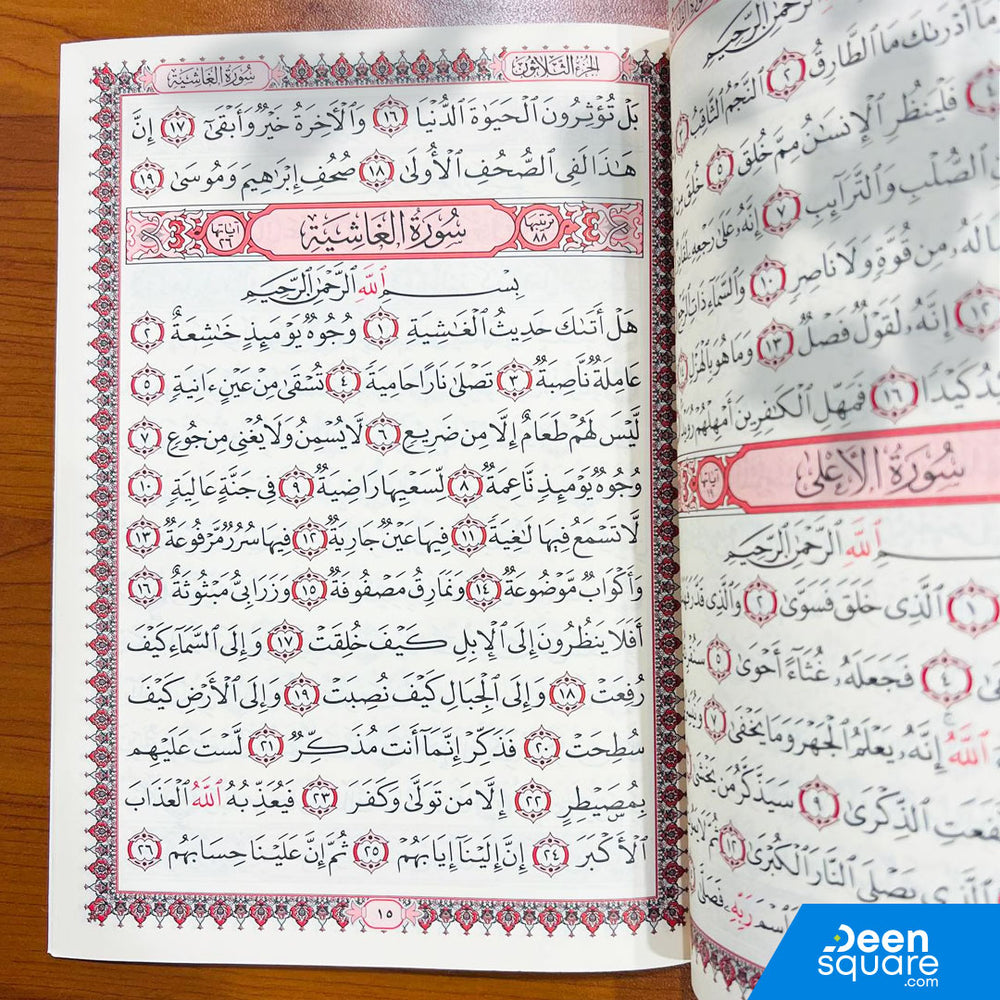 ٱلرَّحْمَٰنِ ٱلرَّحِيمِ
مَآ أَدْرَىٰكَ مَا ٱلطَّارِقُ ٢ ٱلنَّجْمُ ٱلثَّاقِبُ
٤ فَلْيَنظُرِ ٱلْإِنسَٰنُ مِمَّ خُلِقَ ٥ خُلِقَ
ٱلصُّلْبِ وَٱلتَّرَآئِبِ ٧ إِنَّهُۥ عَلَىٰ رَجْعِهِۦ
لَهُۥ مِن قُوَّةٍ وَلَا نَاصِرٍ ١٠ وَٱلسَّمَآءِ ذَاتِ
١٢ إِنَّهُۥ لَقَوْلٌ فَصْلٌ ١٣ وَمَا هُوَ بِٱلْهَزْلِ
كَيْدًا ١٦ فَمَهِّلِ ٱلْكَٰفِرِينَ أَمْهِلْهُمْ
سُورَةُ ٱلْأَعْلَىٰ آيَاتُهَا ١٩
ٱللَّهِ ٱلرَّحْمَٰنِ ٱلرَّحِيمِ
١ ٱلَّذِى خَلَقَ فَسَوَّىٰ ٢ وَٱلَّذِى
٤ فَجَعَلَهُۥ غُثَآءً أَحْوَىٰ ٥
ٱللَّهُ إِنَّهُۥ يَعْلَمُ ٱلْجَهْرَ وَمَا يَخْفَىٰ ٧
ٱلذِّكْرَىٰ ٩ سَيَذَّكَّرُ مَن يَخْشَىٰ
ٱلَّذِى يَصْلَى ٱلنَّارَ ٱلْكُبْرَىٰ ١٢ ثُمَّ لَا
رَبِّهِۦ فَصَلَّىٰ
الجزء الثلاثون سُورَةُ الغَاشِيَةِ
بَلْ تُؤْثِرُونَ ٱلْحَيَوٰةَ ٱلدُّنْيَا ١٦ وَٱلْأَخِرَةُ خَيْرٌ وَأَبْقَىٰٓ ١٧ إِنَّ
هَٰذَا لَفِى ٱلصُّحُفِ ٱلْأُولَىٰ ١٨ صُحُفِ إِبْرَٰهِيمَ وَمُوسَىٰ ١٩
ترتيبها ٨٨ سُورَةُ ٱلْغَاشِيَةِ آياتها ٢٦
بِسْمِ ٱللَّهِ ٱلرَّحْمَٰنِ ٱلرَّحِيمِ
هَلْ أَتَىٰكَ حَدِيثُ ٱلْغَٰشِيَةِ ١ وُجُوهٌ يَوْمَئِذٍ خَٰشِعَةٌ ٢
عَامِلَةٌ نَّاصِبَةٌ ٣ تَصْلَىٰ نَارًا حَامِيَةً ٤ تُسْقَىٰ مِنْ عَيْنٍ ءَانِيَةٍ ٥
لَّيْسَ لَهُمْ طَعَامٌ إِلَّا مِن ضَرِيعٍ ٦ لَّا يُسْمِنُ وَلَا يُغْنِى مِن جُوعٍ ٧
وُجُوهٌ يَوْمَئِذٍ نَّاعِمَةٌ ٨ لِّسَعْيِهَا رَاضِيَةٌ ٩ فِى جَنَّةٍ عَالِيَةٍ ١٠
لَّا تَسْمَعُ فِيهَا لَٰغِيَةً ١١ فِيهَا عَيْنٌ جَارِيَةٌ ١٢ فِيهَا سُرُرٌ مَّرْفُوعَةٌ ١٣
وَأَكْوَابٌ مَّوْضُوعَةٌ ١٤ وَنَمَارِقُ مَصْفُوفَةٌ ١٥ وَزَرَابِىُّ مَبْثُوثَةٌ ١٦
أَفَلَا يَنظُرُونَ إِلَى ٱلْإِبِلِ كَيْفَ خُلِقَتْ ١٧ وَإِلَى ٱلسَّمَآءِ كَيْفَ
رُفِعَتْ ١٨ وَإِلَى ٱلْجِبَالِ كَيْفَ نُصِبَتْ ١٩ وَإِلَى ٱلْأَرْضِ كَيْفَ
سُطِحَتْ ٢٠ فَذَكِّرْ إِنَّمَآ أَنتَ مُذَكِّرٌ ٢١ لَّسْتَ عَلَيْهِم
بِمُصَيْطِرٍ ٢٢ إِلَّا مَن تَوَلَّىٰ وَكَفَرَ ٢٣ فَيُعَذِّبُهُ ٱللَّهُ ٱلْعَذَابَ
ٱلْأَكْبَرَ ٢٤ إِنَّ إِلَيْنَآ إِيَابَهُمْ ٢٥ ثُمَّ إِنَّ عَلَيْنَا حِسَابَهُم ٢٦
١٥
Deen
square
.com